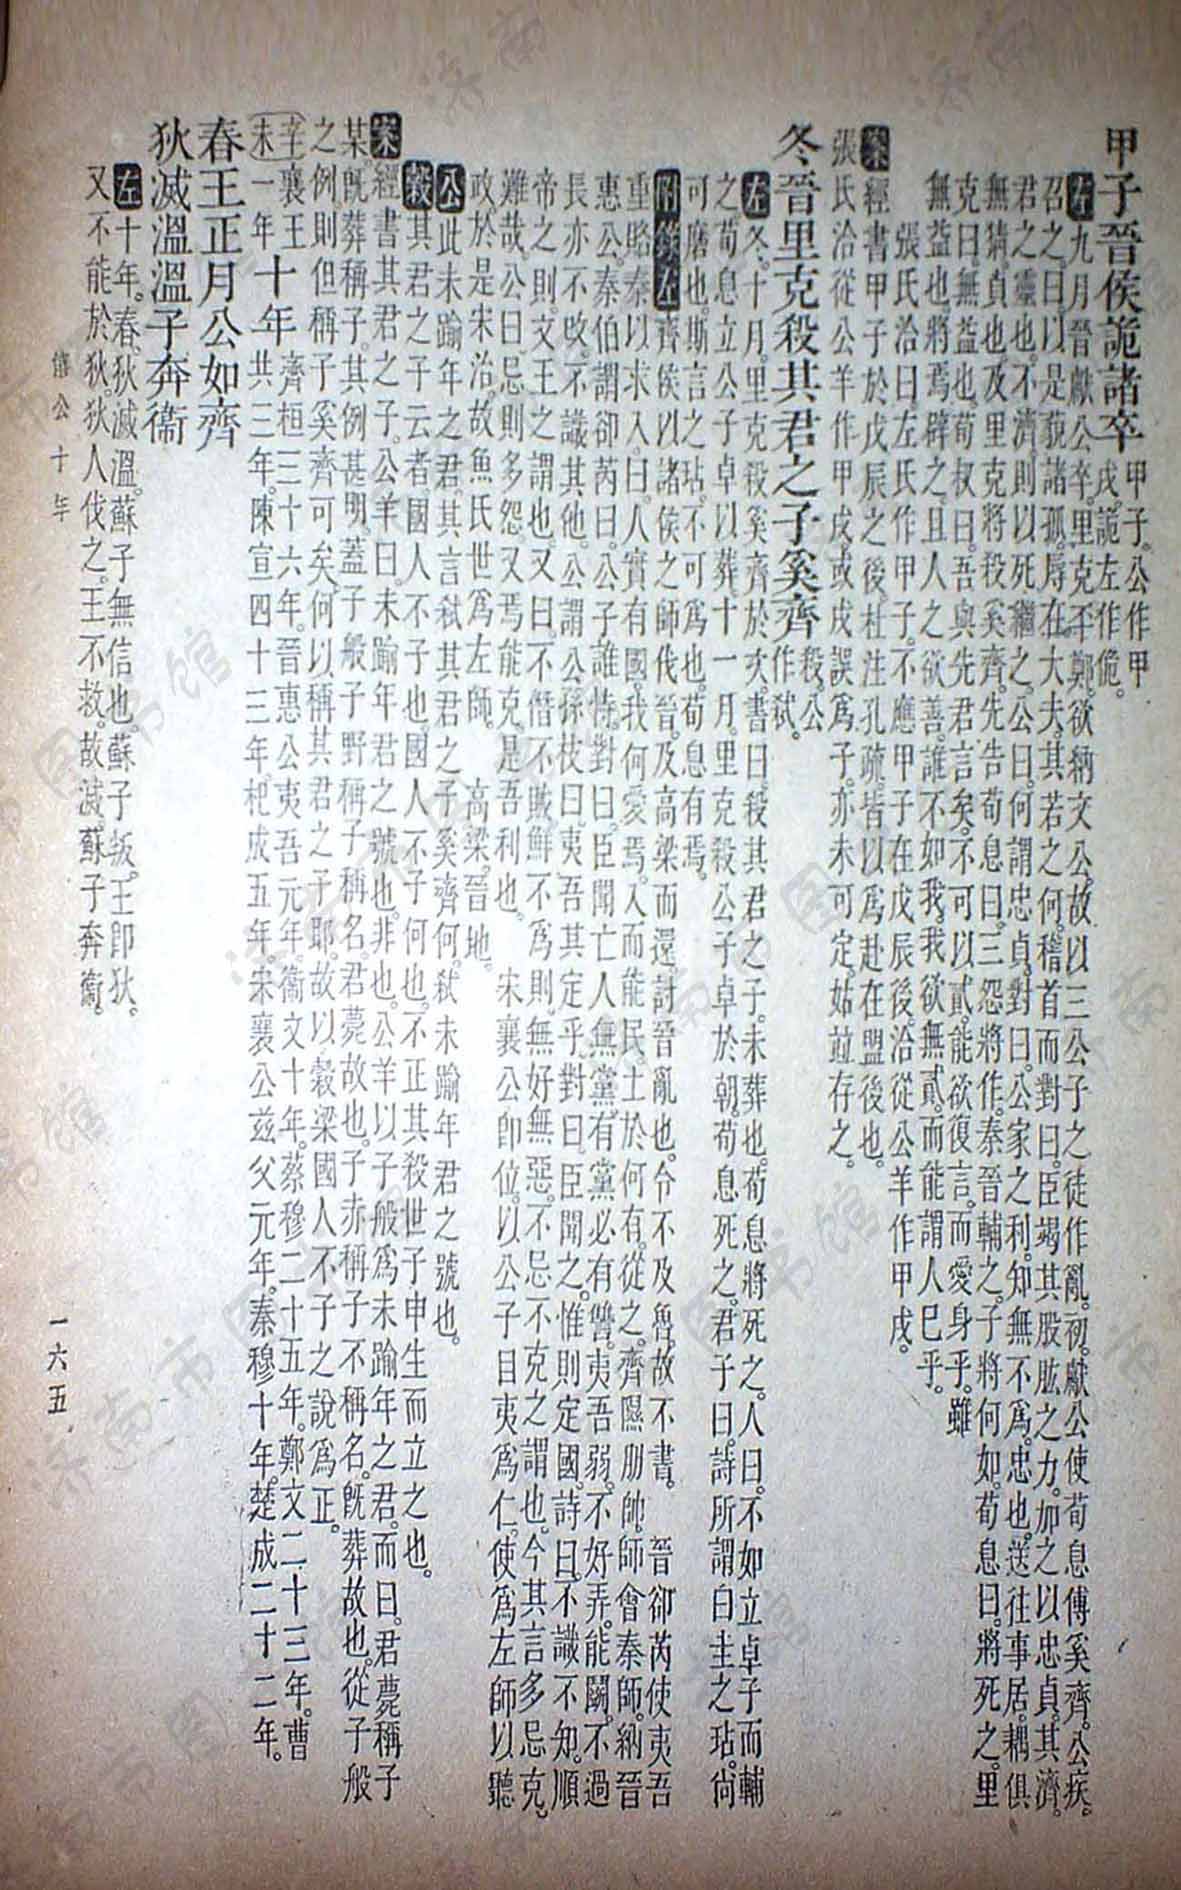 甲子晉侯詭諸卒甲子。公作甲
戌。詭左作佹。
左九月。晉獻公卒。里克丕鄭。欲納文公。故以三公子之徒作亂。初。獻公使荀息傅奚齊。公疾。
召之曰。以是藐諸孤。辱在大夫。其若之何。稽首而對曰。臣竭其股肱之力。加之以忠貞。其濟。
君之靈也。不濟。則以死繼之。公曰。何謂忠貞。對曰。公家之利。知無不爲。忠也。送往事居。耦俱
無猜。貞也。及里克將殺奚齊。先告荀息曰。三怨將作。秦晉輔之。子將何如。荀息曰。將死之。里
克曰。無益也。荀叔曰。吾與先君言矣。不可以貳。能欲復言。而愛身乎。雖
無益也。將焉辟之。且人之欲善。誰不如我。我欲無貳。而能謂人已乎。
張氏洽曰。左氏作甲子。不應甲子在戊辰後。洽從公羊作甲戌。
案經書甲子於戊辰之後。杜注孔疏。皆以爲赴在盟後也。
張氏洽從公羊作甲戌。或戌誤爲子。亦未可定。姑竝存之。
冬晉里克殺其君之子奚齊殺。公
作弒。
左冬。十月。里克殺奚齊於次。書曰。殺其君之子。未葬也。荀息將死之。人曰。不如立卓子而輔
之。荀息立公子卓以葬。十一月。里克殺公子卓於朝。荀息死之。君子曰。詩所謂白圭之玷。尙
可磨也。斯言之玷。不可爲也。荀息有焉。
附錄左齊侯以諸侯之師伐晉。及高梁而還。討晉亂也。令不及魯。故不書。 晉郤芮使夷吾
重賂秦以求入。曰。人實有國。我何愛焉。入而能民。土於何有。從之。齊隰朋帥師會秦師。納晉
惠公。秦伯謂郤芮曰。公子誰恃。對曰。臣聞亡人無黨。有黨必有讐。夷吾弱。不好弄。能鬭不過。
長亦不改。不識其他。公謂公孫枝曰。夷吾其定乎。對曰。臣聞之。惟則定國。詩曰。不識不知。順
帝之則。文王之謂也。又曰。不僭不賊。鮮不爲則。無好無惡。不忌不克之謂也。今其言多忌克。
難哉。公曰。忌則多怨。又焉能克。是吾利也。 宋襄公卽位。以公子目夷爲仁。使爲左師以聽
政。於是宋治。故魚氏世爲左師。 高梁。晉地。
公此未踰年之君。其言弒其君之子奚齊何。弒未踰年君之號也。
穀其君之子云者。國人不子也。國人不子何也。不正其殺世子申生而立之也。
案經書其君之子。公羊曰。未踰年君之號也。非也。公羊以子般爲未踰年之君。而曰。君薨稱子
某。旣葬稱子。其例甚明。蓋子般子野稱子稱名。君薨故也。子赤稱子不稱名。旣葬故也。從子般
之例。則但稱子奚齊可矣。何以稱其君之子耶。故以穀梁國人不子之說爲正。
辛未 襄王一年 十年 齊桓三十六年。晉惠公夷吾元年。衞文十年。蔡穆二十五年。鄭文二十三年。曹
共三年。陳宣四十三年。杞成五年。宋襄公玆父元年。秦穆十年。楚成二十二年。
春王正月公如齊
狄滅溫溫子奔衞
左十年。春。狄滅溫。蘇子無信也。蘇子叛。王卽狄。
又不能於狄。狄人伐之。王不救。故滅。蘇子奔衞。
僖公十年
一六五